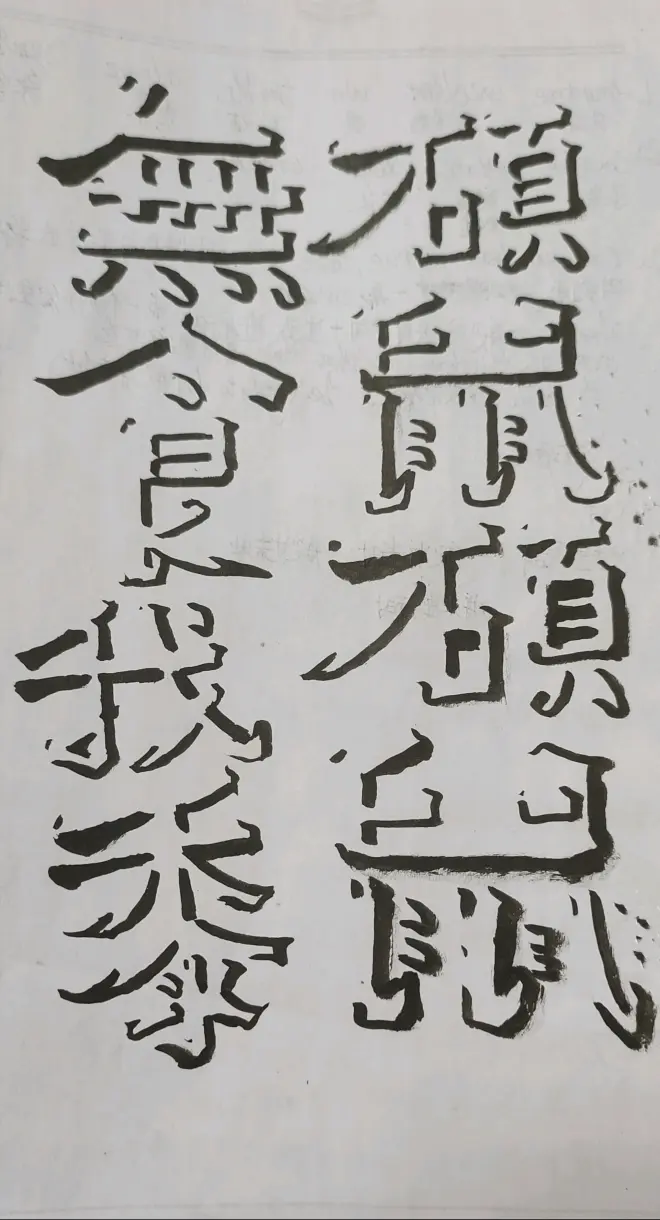 碩鼠碩鼠
無食我黍